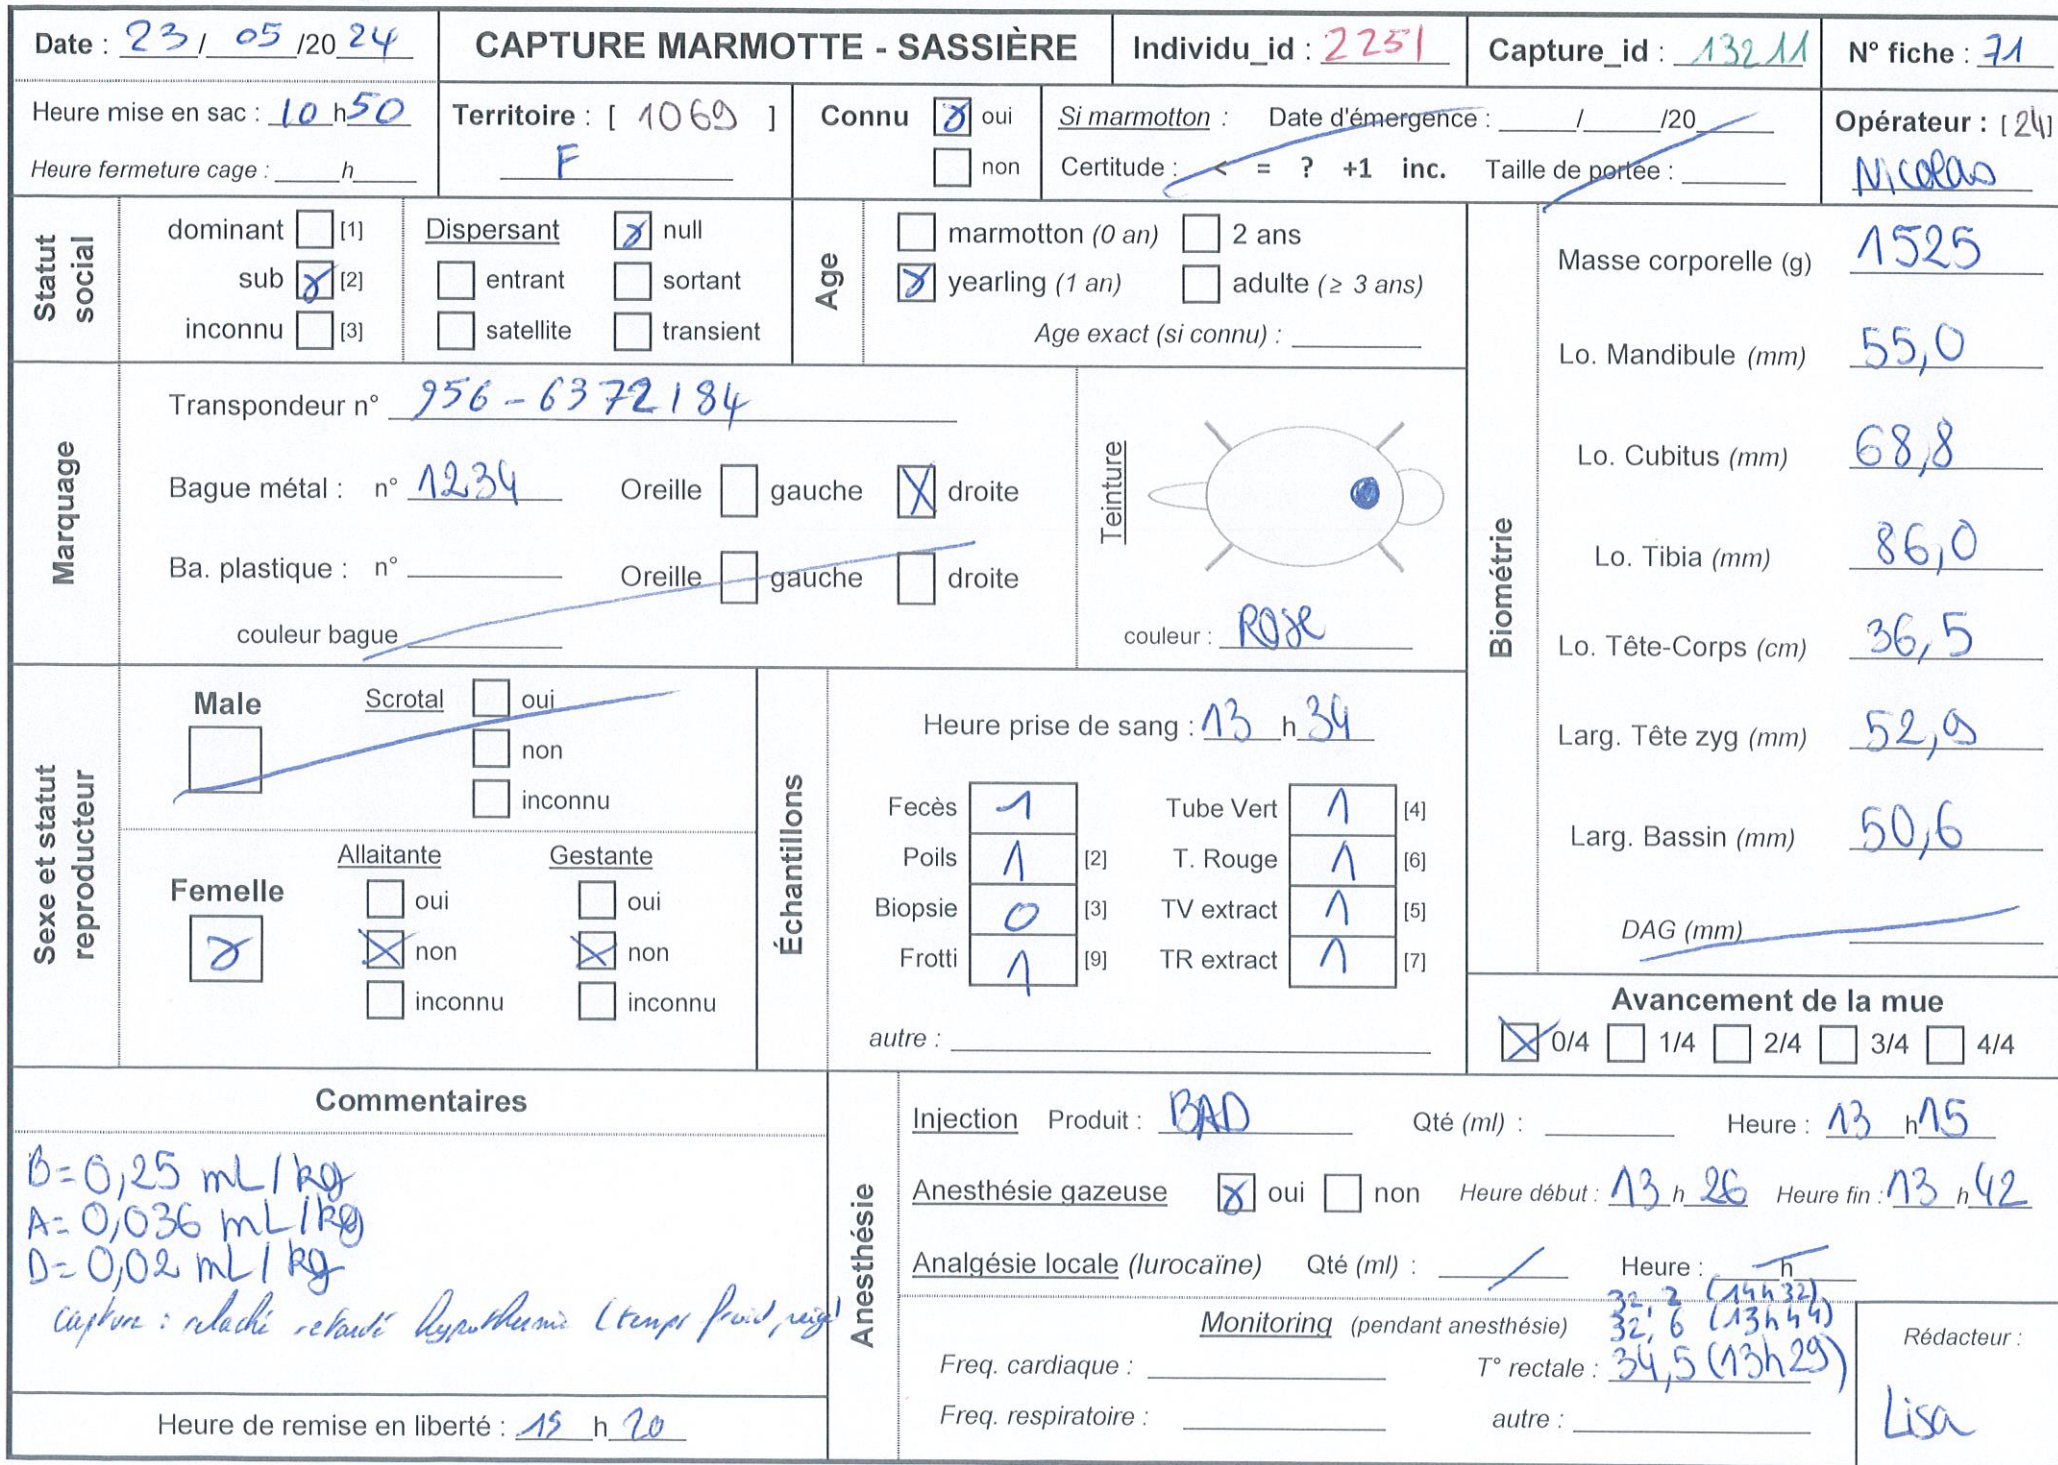 Date : 23 / 05 /20 24
CAPTURE MARMOTTE - SASSIÈRE
Individu_id : 2251
Capture_id : 13211
N° fiche : 71
Heure mise en sac : 10 h 50
Heure fermeture cage : ____ h ____
Territoire : [ 1069 ]
F
Connu
oui
non
Si marmotton : Date d'émergence : ____/____/20____
Certitude : < = ? +1 inc. Taille de portée : ____
Opérateur : [24]
Nicolas
Statut social
dominant [1]
sub [2]
inconnu [3]
Dispersant
null
entrant
sortant
satellite
transient
Age
marmotton (0 an)
2 ans
yearling (1 an)
adulte (≥ 3 ans)
Age exact (si connu) :
Marquage
Transpondeur n° 956-6372184
Bague métal : n° 1234 Oreille gauche droite
Ba. plastique : n° Oreille gauche droite
couleur bague
Teinture
couleur : Rose
Biométrie
Masse corporelle (g) 1525
Lo. Mandibule (mm) 55,0
Lo. Cubitus (mm) 68,8
Lo. Tibia (mm) 86,0
Lo. Tête-Corps (cm) 36,5
Larg. Tête zyg (mm) 52,9
Larg. Bassin (mm) 50,6
DAG (mm)
Sexe et statut reproducteur
Male
Scrotal
oui
non
inconnu
Femelle
Allaitante
oui
non
inconnu
Gestante
oui
non
inconnu
Échantillons
Heure prise de sang : 13 h 34
Fecès 1
Poils 1 [2]
Biopsie 0 [3]
Frotti 1 [9]
Tube Vert 1 [4]
T. Rouge 1 [6]
TV extract 1 [5]
TR extract 1 [7]
autre :
Avancement de la mue
0/4 1/4 2/4 3/4 4/4
Commentaires
B=0,25 mL/kg
A=0,036 mL/kg
D=0,02 mL/kg
capture : relaché retardé hypothermie (temps froid, neige)
Heure de remise en liberté : 15 h 20
Anesthésie
Injection Produit : BAD Qté (ml) : Heure : 13 h 15
Anesthésie gazeuse oui non Heure début : 13 h 26 Heure fin : 13 h 42
Analgésie locale (lurocaïne) Qté (ml) : Heure : h
Monitoring (pendant anesthésie)
32,2 (14h32)
32,6 (13h44)
Freq. cardiaque :
T° rectale : 34,5 (13h29)
Freq. respiratoire :
autre :
Rédacteur :
Lisa